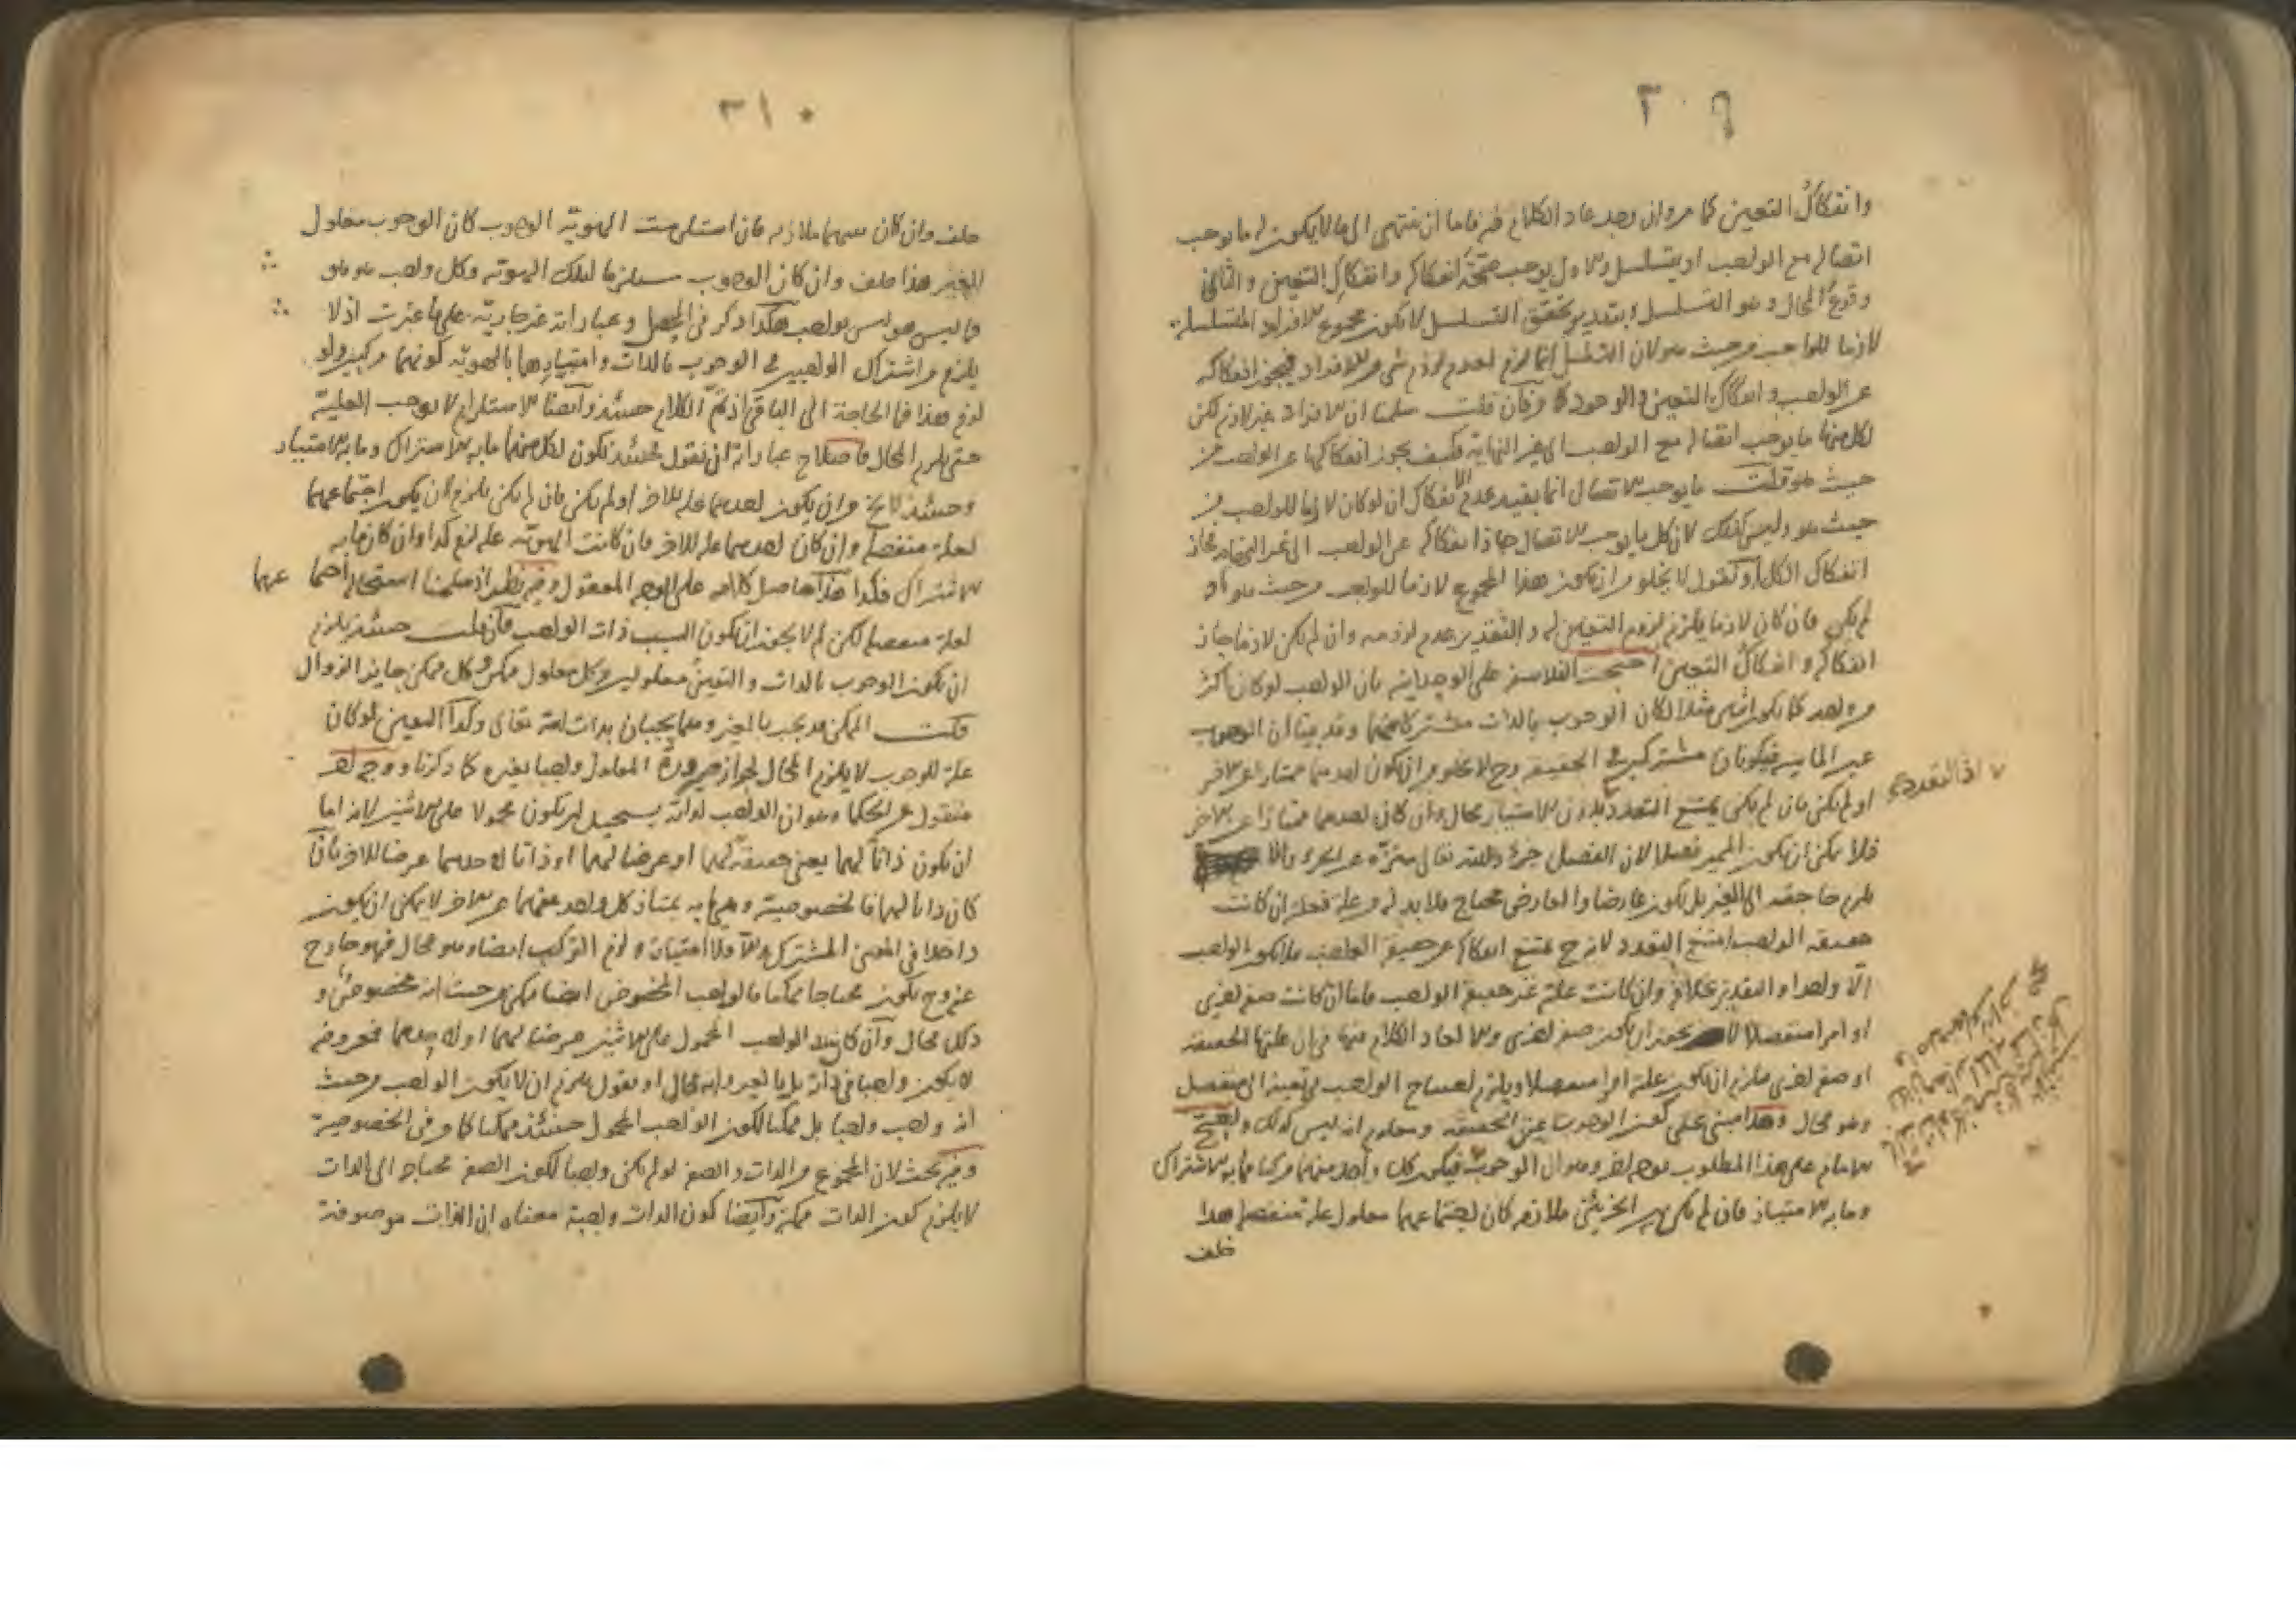 ٣٠٩
وانفكاك التعين كما مر وان وجد عاد الكلام فيه فاما ان ينتهي الى ما لا يكون له ما يوجب
اتصاله مع الواجب او يتسلسل والاول يوجب صحة انفكاكه وانفكاك التعين والثاني
وقوع المحال وهو التسلسل وبتقدير تحقق التسلسل لا يكون مجموع الافراد المتسلسلة
لازما للواجب من حيث هو لان التسلسل انما لزم لعدم لزوم شيء من الافراد فيجوز انفكاكه
عن الواجب وانفكاك التعين والوجود فان قلت سلمنا ان الافراد غير لازم لكن
لكل منها ما يوجب اتصاله مع الواجب الى غير النهاية فكيف يجوز انفكاكها عن الواجب من
حيث هو قلت ما يوجب الاتصال انما يفيد عدم الانفكاك ان لو كان لازما للواجب من
حيث هو وليس كذلك لان كل ما يوجب الاتصال جاز انفكاكه عن الواجب الى غير النهاية فجاز
انفكاك الكل او نقول لا يخلو من ان يكون هذا المجموع لازما للواجب من حيث هو او
لم يكن فان كان لازما يلزم لزوم التعين له والتقدير عدم لزومه وان لم يكن لازما جاز
انفكاكه وانفكاك التعين احتجت الفلاسفة على الوحدانية بان الواجب لو كان اكثر
من واحد كما يكون اثنين مثلا لكان الوجوب بالذات مشتركا بينهما وقد بينا ان الوجوب
عين الماهية فيكونان مشتركين في الحقيقة وح لا يخلو من ان يكون احدهما ممتازا عن الاخر
او لم يكن فان لم يكن يمتنع التعدد بدون الامتياز محال وان كان احدهما ممتازا عن الاخر
اذ التعدد
فلا يمكن ان يكون المميز فصلا لان الفصل جزء والله تعالى منزه عن الجزء والا
يلزم حاجته الى الغير بل يكون عارضا والعارض محتاج فلا بد له من علة فعلته ان كانت
حقيقة الواجب امتنع التعدد لانه ح يمتنع انفكاكه عن حقيقة الواجب فلا يكون الواجب
الا واحدا والتقدير بخلافه وان كانت علته غير حقيقة الواجب فاما ان كانت صفة اخرى
او امرا منفصلا لا يجوز ان يكون صفة اخرى والا لعاد الكلام فيها في ان علتها الحقيقة
او صفة اخرى فيلزم ان يكون علته امرا منفصلا ويلزم احتياج الواجب في تعينه الى منفصل
وهو محال وهذا مبني على كون الوجوب عين الحقيقة ومعلوم انه ليس كذلك واحتج
الامام على هذا المطلوب بوجه اخر وهو ان الوجوب فيكون كل واحد منهما مركبا مما به الاشتراك
وما به الامتياز فان لم يكن بين الجزئين ملازمة كان اجتماعهما معلول علة منفصلة هذا
خلف
٣١٠
خلف وان كان بينهما ملازمة فان استلزمت الهوية الوجوب كان الوجوب معلول
الغير هذا خلف وان كان الوجوب مستلزما لتلك الهوية وكل واجب هو هو
فما ليس هو ليس بواجب هكذا ذكر في المحصل وعباراته غير جارية على ما عبرت اذ لا
يلزم من اشتراك الواجبين في الوجوب بالذات وامتيازهما بالهوية كونهما مركبين ولو
لزم هذا فما الحاجة الى الباقي اذ تم الكلام حينئذ وايضا الاستلزام لا يوجب العلية
حتى يلزم المحال فاصلاح عباراته ان نقول فحينئذ يكون لكل منهما ما به الاشتراك وما به الامتياز
وحينئذ لا يخ من ان يكون احدهما علة للاخر او لم يكن فان لم يكن يلزم ان يكون اجتماعهما
لعلة منفصلة وان كان احدهما علة للاخر فان كانت الهوية علة لزم كذا وان كان ما به
الاشتراك فكذا هذا حاصل كلامه على الوجه المعقول وفيه نظر اذ سلمنا استحالة اجتماعهما
لعلة منفصلة لكن لم لا يجوز ان يكون السبب ذات الواجب فان قلت حينئذ يلزم
ان يكون الوجوب بالذات والتعين معلولين وكل معلول ممكن وكل ممكن جايز الزوال
قلت الممكن قد يجب بالغير وهما يجبان بذات الله تعالى وكذا التعين لو كان
علة للوجوب لا يلزم المحال لجواز صيرورة المعلول واجبا بغيره كما ذكرنا ووجه اخر
منقول عن الحكما وهو ان الواجب لذاته يستحيل ان يكون محمولا على الاثنين لانه اما
ان يكون ذاتيا لهما يعني حقيقة لهما او عرضيا لهما او ذاتيا لاحدهما عرضيا للاخر فان
كان ذاتيا لهما فالخصوصية وهي ما به يمتاز كل واحد منهما عن الاخر لا يمكن ان يكون
داخلا في المعنى المشترك والا فلا امتياز ولزم التركيب ايضا وهو محال فهو خارج
عنه وح يكون محتاجا ممكنا فالواجب المخصوص ايضا ممكن من حيث انه مخصوص و
ذلك محال وان كان الواجب المحمول على الاثنين عرضيا لهما او لاحدهما فمعروضه
لا يكون واجبا في ذاته بل بالغير وانه محال او نقول يلزم ان لا يكون الواجب من حيث
انه واجب واجبا بل ممكنا لكون الواجب المحمول حينئذ ممكنا كما مر في الخصوصية
وفيه بحث لان المجموع من الذات والصفة لو لم يكن واجبا لكون الصفة محتاجة الى الذات
لا يلزم كون الذات ممكنة وايضا كون الذات واجبة معناه ان الذات موصوفة